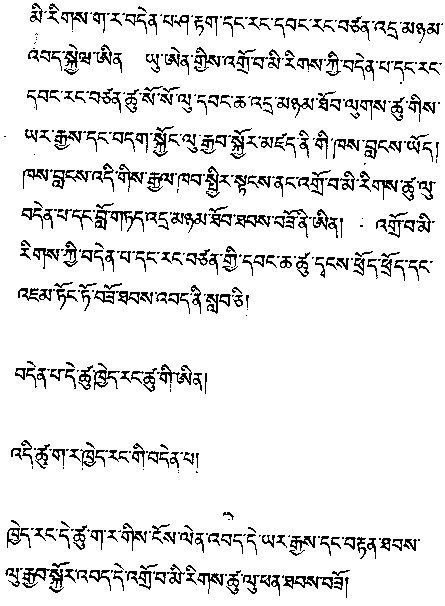 མི་རིགས་ག་ར་བདེན་པ་ཤ་རྟག་དང་རང་དབང་རང་བཙན་འདྲ་མཉམ་
འབད་སྐྱེཝ་ཨིན། ཡུ་ཨེན་གྱིས་འགྲོ་བ་མི་རིགས་ཀྱི་བདེན་པ་དང་རང་
དབང་རང་བཙན་ཚུ་སོ་སོ་ལུ་དབང་ཆ་འདྲ་མཉམ་ཐོབ་ལུགས་ཚུ་གིས་
ཡར་རྒྱས་དང་བདག་སྐྱོང་ལུ་རྒྱབ་སྐྱོར་མཛད་ནི་གི་ཁས་བླངས་ཡོད།
ཁས་བླངས་འདི་གིས་རྒྱལ་ཁབ་སྤྱིར་སྟངས་ནང་འགྲོ་བ་མི་རིགས་ཚུ་ལུ་
བདེན་པ་དང་བློ་གཏད་འདྲ་མཉམ་ཐོབ་ཐབས་བཟོ་ནི་ཨིན། འགྲོ་བ་མི་
རིགས་ཀྱི་བདེན་པ་དང་རང་བཙན་གྱི་དབང་ཆ་ཚུ་དྭངས་ཕྲོད་ཕྲོད་དང་
འཇམ་ཏོང་ཏོ་བཟོ་ཐབས་འབད་ནི་སླབ་ཅི།
བདེན་པ་དེ་ཚུ་ཁྱེད་རང་ཚུ་གི་ཨིན།
འདི་ཚུ་ག་ར་ཁྱེད་རང་གི་བདེན་པ།
ཁྱེད་རང་དེ་ཚུ་ག་ར་གིས་ངོས་ལེན་འབད་དེ་ཡར་རྒྱས་དང་བརྟན་ཐབས་
ལུ་རྒྱབ་སྐྱོར་འབད་དེ་འགྲོ་བ་མི་རིགས་ཚུ་ལུ་ཕན་ཐབས་བཟོ།